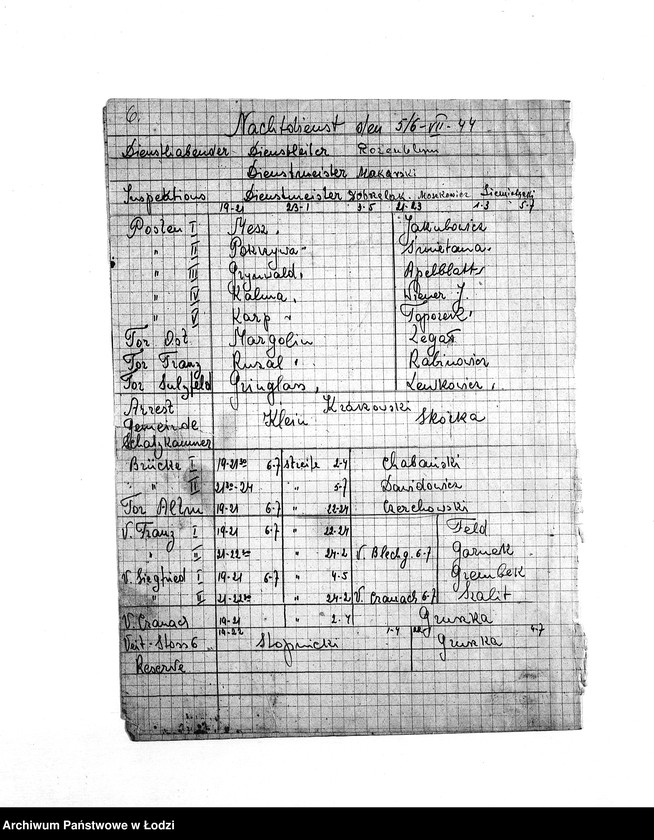 6.
Nachtdienst den 5/6-VII-44
Diensthabender Dienstleiter Rozenblum
Dienstmeister Makarski
Inspektions Dienstmeister Dobrzelak, Monkowicz
19-21 23-1 3-5 21-23 1-3 5-7
Posten I Mesz. Jakubowicz
" II Pokrzywa. Smietana.
" III Grynwald. Apelblatt
" IV Kalma. Wiener J.
" V Karp
Tor Ost. Margolin Zegar
Tor Franz Rusal Rabinowicz
Tor Sulzfeld Gringlass, Lewkowicz,
Arrest Krakowski
Gemeinde Klein Skórka
Schatzkammer
Brücke I 19-21³⁰ 6-7 Streife 2-4 Chabański
" II 21³⁰-24 " 5-7 Dawidowicz
Tor Altm 19-21 6-7 " 22-24 Czerchowski
V. Franz I 19-21 6-7 " 22-24 Feld
" II 21-22³⁰ " 24-2 V. Blechg. 6-7 Garnek
V. Siegfried I 19-21 6-7 " 4-5 Grembek
" II 21-22³⁰ " 24-2 V. Cranach 6-7 Szalit
V. Cranach 19-21 " 2-4 Gruszka
Veit-Stoss 6 19-22 Stopnicki 1-4 Gruszka 4-7
Reserve
Archiwum Państwowe w Łodzi